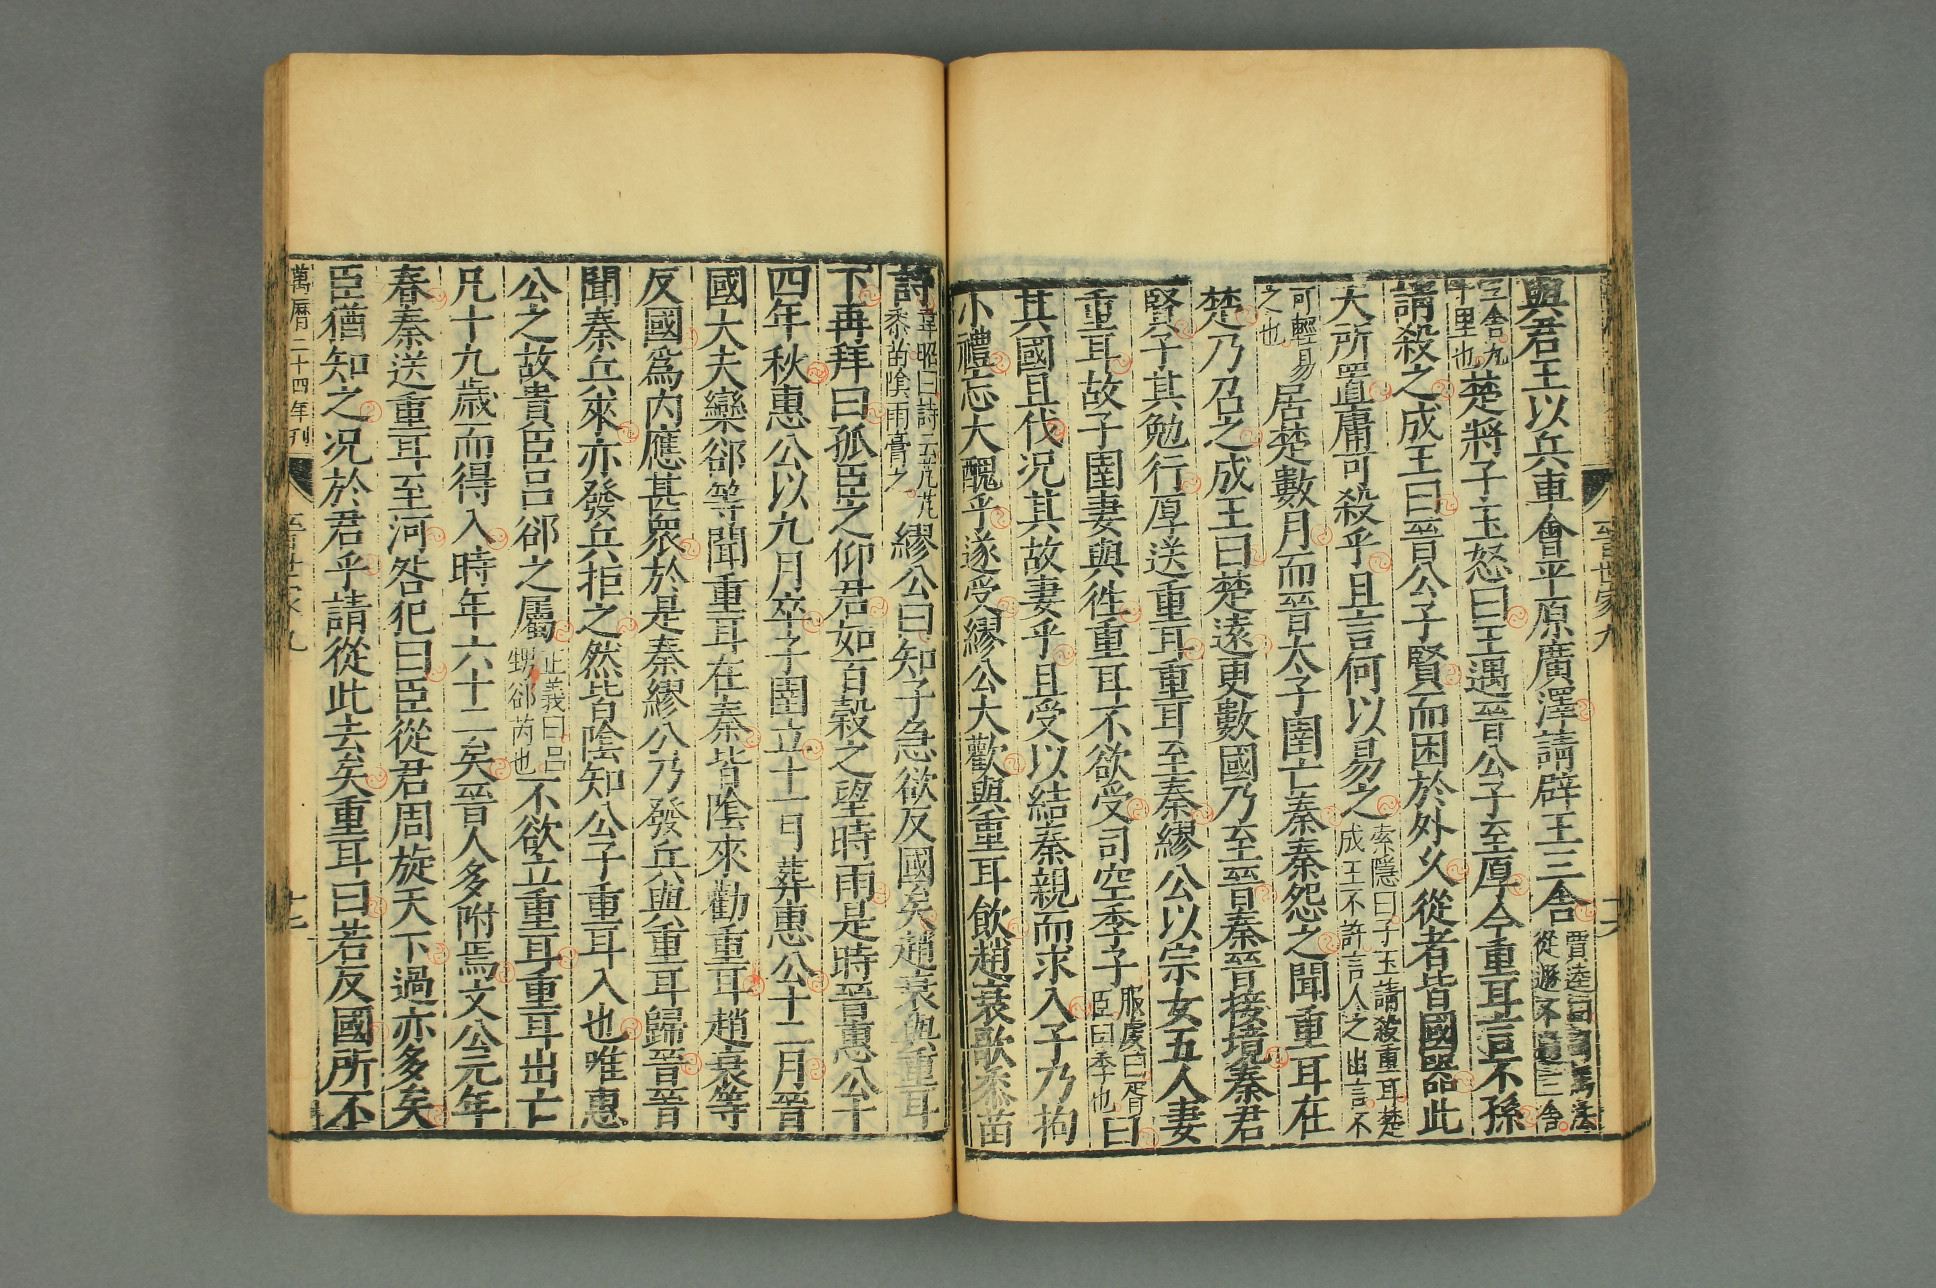 晉世家九
十六
與君王以兵車會平原廣澤請辟王三舍賈逵曰司馬法從遯不過三舍
三舍九十里也楚將子玉怒曰王遇晉公子至厚今重耳言不孫
請殺之成王曰晉公子賢而困於外久從者皆國器此
天所置庸可殺乎且言何以易之索隱曰子玉請殺重耳楚成王不許言人之出言不
可輕易之也居楚數月而晉太子圉亡秦秦怨之聞重耳在
楚乃召之成王曰楚遠更數國乃至晉秦晉接境秦君
賢子其勉行厚送重耳重耳至秦繆公以宗女五人妻
重耳故子圉妻與徃重耳不欲受司空季子服虔曰胥臣曰季也曰
其國且伐况其故妻乎且受以結秦親而求入子乃拘
小禮忘大醜乎遂受繆公大歡與重耳飲趙衰歌黍苗
詩韋昭曰詩云芃芃黍苗陰雨膏之繆公曰知子急欲反國矣趙衰與重耳
下再拜曰孤臣之仰君如百穀之望時雨是時晉惠公十
四年秋惠公以九月卒子圉立十一月葬惠公十二月晉
國大夫欒郤等聞重耳在秦皆陰來勸重耳趙衰等
反國爲内應甚衆於是秦繆公乃發兵與重耳歸晉晉
聞秦兵來亦發兵拒之然皆陰知公子重耳入也唯惠
公之故貴臣吕郤之屬正義曰吕甥郤芮也不欲立重耳重耳出亡
凡十九歲而得入時年六十二矣晉人多附焉文公元年
春秦送重耳至河咎犯曰臣從君周旋天下過亦多矣
臣猶知之况於君乎請從此去矣重耳曰若反國所不
萬曆二十四年刊
晉世家九
十七